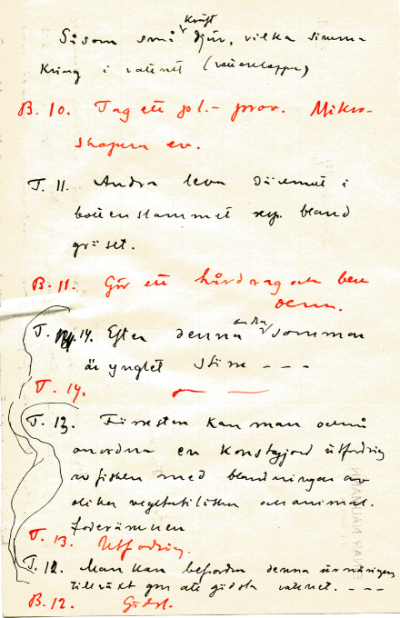 Kräft
Såsom små djur, vilka simma
kring i vattnet (vattenloppor)
B. 10. Tag ett pl.- prov. Mikro-
skopera ev.
T. 11. Andra leva däremot i
bottenslammet resp. bland
gräset.
B. 11. Gör ett håvdrag och bese
denna.
T. 14. Efter denna andra sommar
är ynglet större - - -
T. 14. — —
T. 13. Förresten kan man också
anordna en konstgjord utfodring
av fisken med blandningar av
olika vegetabiliska och animal.
foderämnen
T. 13 Utfodring.
T. 12. Man kan befordra denna ur näringens
tillväxt gm att gödsla vattnet. - - -
B. 12. Gödsl.